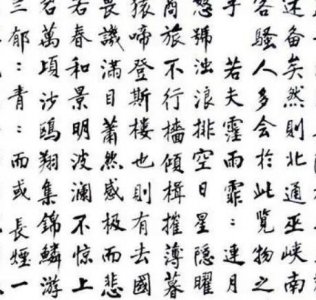 述备矣然則北通巫峽南
客騷人多會於此覽物之
乎 若夫霪雨霏:連月
怒號浊浪排空日星隱曜
商旅不行檣傾楫摧薄暮
猿啼登斯樓也則有去國
畏譏滿目蕭然感极而悲
若春和景明波瀾不惊上
萬頃沙鷗翔集錦鱗游
郁:青:而或長煙一